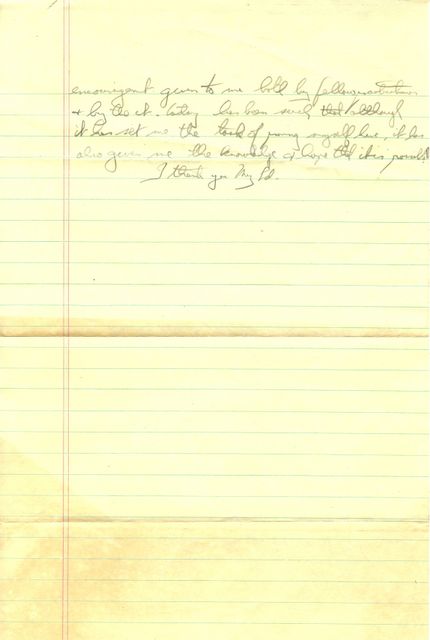 encouragent given to me both by fellow
+ by the ct. today has been such that although
it has set me the task of proving myself here, it has
also given me the knowledge & hope that it is possible
I thank you My Ld.